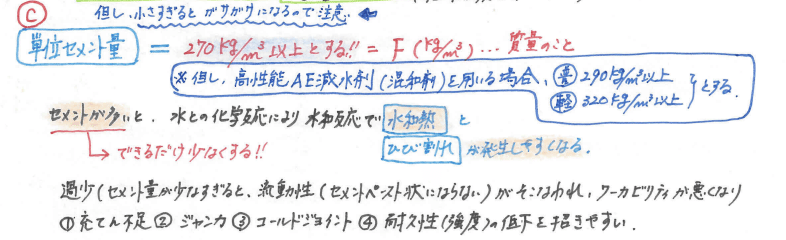 Ⓒ 但し、小さすぎるとガサガサになるので注意.
単位セメント量 = 270kg/m³以上とする!! = F (kg/m³) … 質量のこと
※但し、高性能AE減水剤(混和剤)を用いる場合、
普 290kg/m³以上
軽 320kg/m³以上 }とする.
セメントが多いと、水との化学反応により水和反応で 水和熱 と
→できるだけ少なくする!! ひび割れ が発生しやすくなる.
過少(セメント量が少なすぎると、流動性(セメントペースト状にならない)がそこなわれ、ワーカビリティが悪くなり
①充てん不足 ② ジャンカ ③ コールドジョイント ④ 耐久性(強度)の低下を招きやすい.